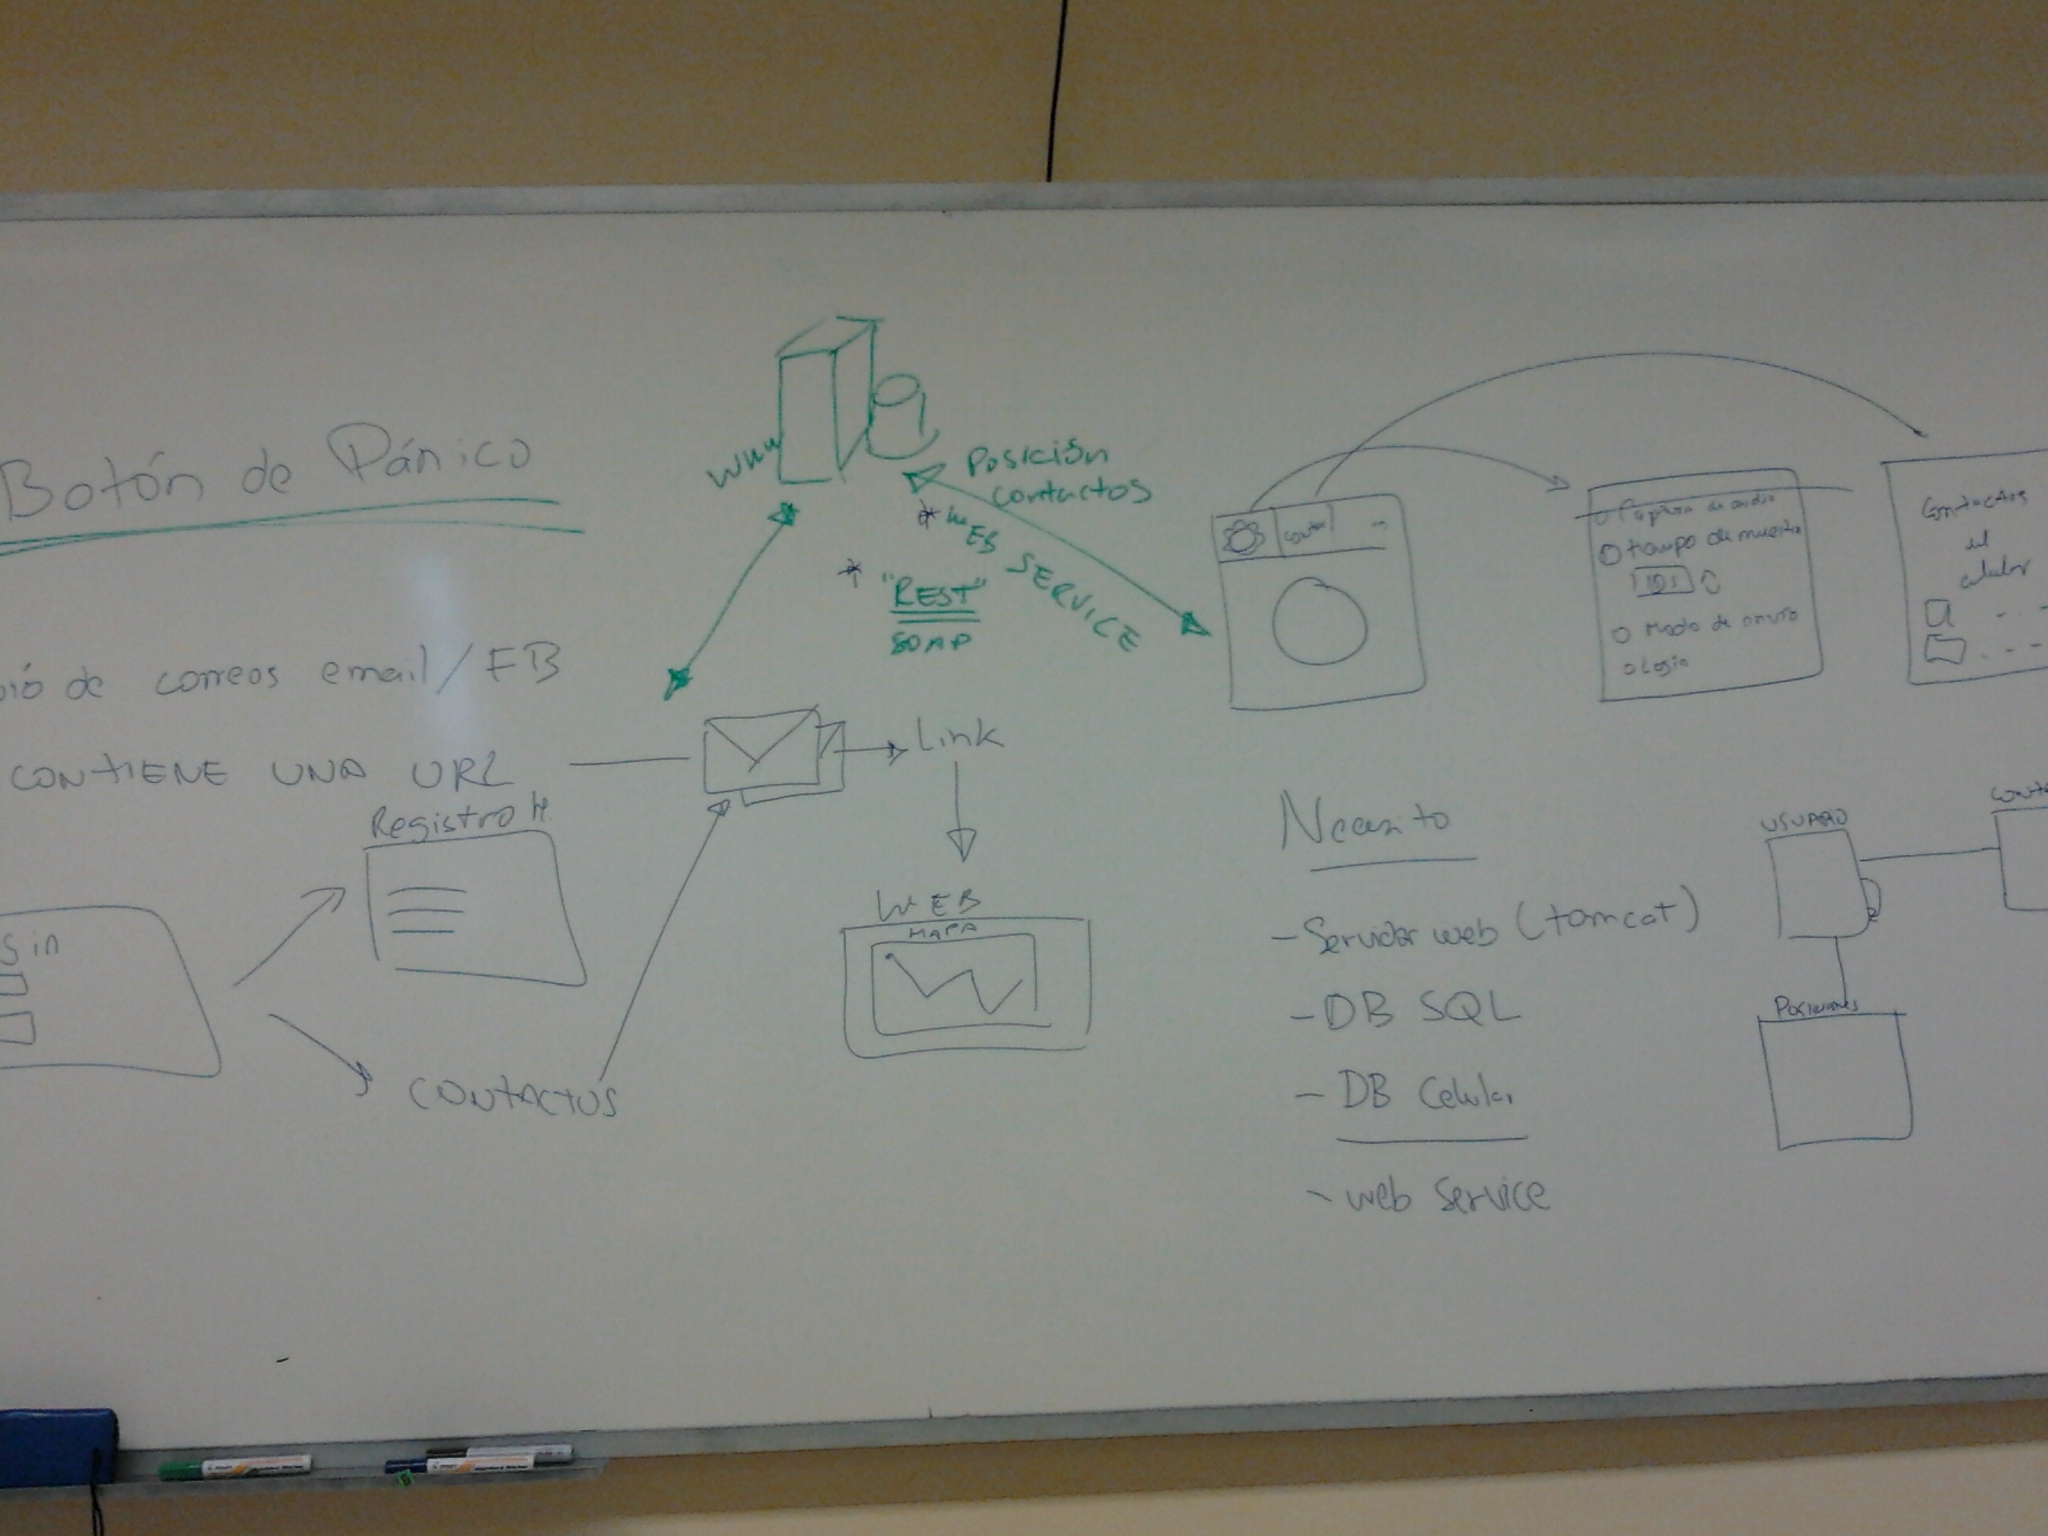 Botón de Pánico
de correos email/FB
CONTIENE UNA URL
Registro H.
S in
CONTACTOS
www
Posición
contactos
* WEB SERVICE
* "REST"
SOAP
Link
WEB
MAPA
Captura de audio
tiempo de muestra
Modo de envio
Login
Contactos
el
celular
Necesito
- Servidor web (tomcat)
- DB SQL
- DB Celular
- web service
USUARIO
Posiciones